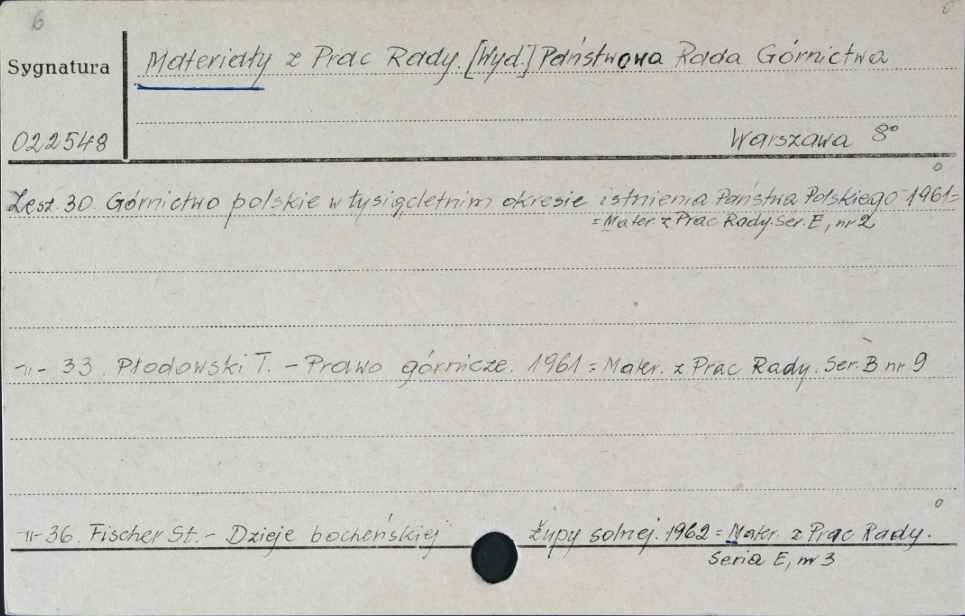 6
Sygnatura
Materiały z Prac Rady. [Wyd.] Państwowa Rada Górnictwa
022548
Warszawa 8°
Zesz. 30. Górnictwo polskie w tysiącletnim okresie istnienia Państwa Polskiego 1961=
= Mater. z Prac Rady. Ser. E, nr 2
-"- 33. Płodowski T. - Prawo górnicze. 1961 = Mater. z Prac Rady. Ser. B nr 9
-"- 36. Fischer St. - Dzieje bocheńskiej żupy solnej. 1962 = Mater. z Prac Rady.
Seria E, nr 3